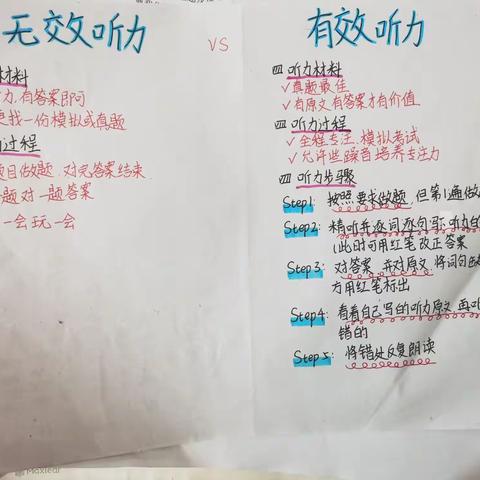 无效听力
VS
有效听力
材料
力,有答案即可
找一份模拟或真题
过程
目做题.对完答案结束.
题对一题答案
一会玩一会
四 听力材料
✓真题最佳
✓有原文有答案才有价值
四 听力过程
✓全程专注.模拟考试
✓允许些躁音培养专注力
四 听力步骤
Step1: 按照要求做题,但第1遍做
Step2: 精听并逐词逐句写听力的
(此时可用红笔改正答案
Step3: 对答案 并对原文 将词句
方用红笔标出
Step4: 看着自己写的听力原文 再听
错的
Step5: 将错处反复朗读